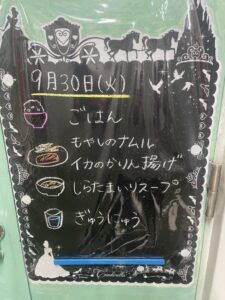 9月30日(火)
ごはん
もやしのナムル
イカのかりん揚げ
しらたまいりスープ
ぎゅうにゅう
Cinderella